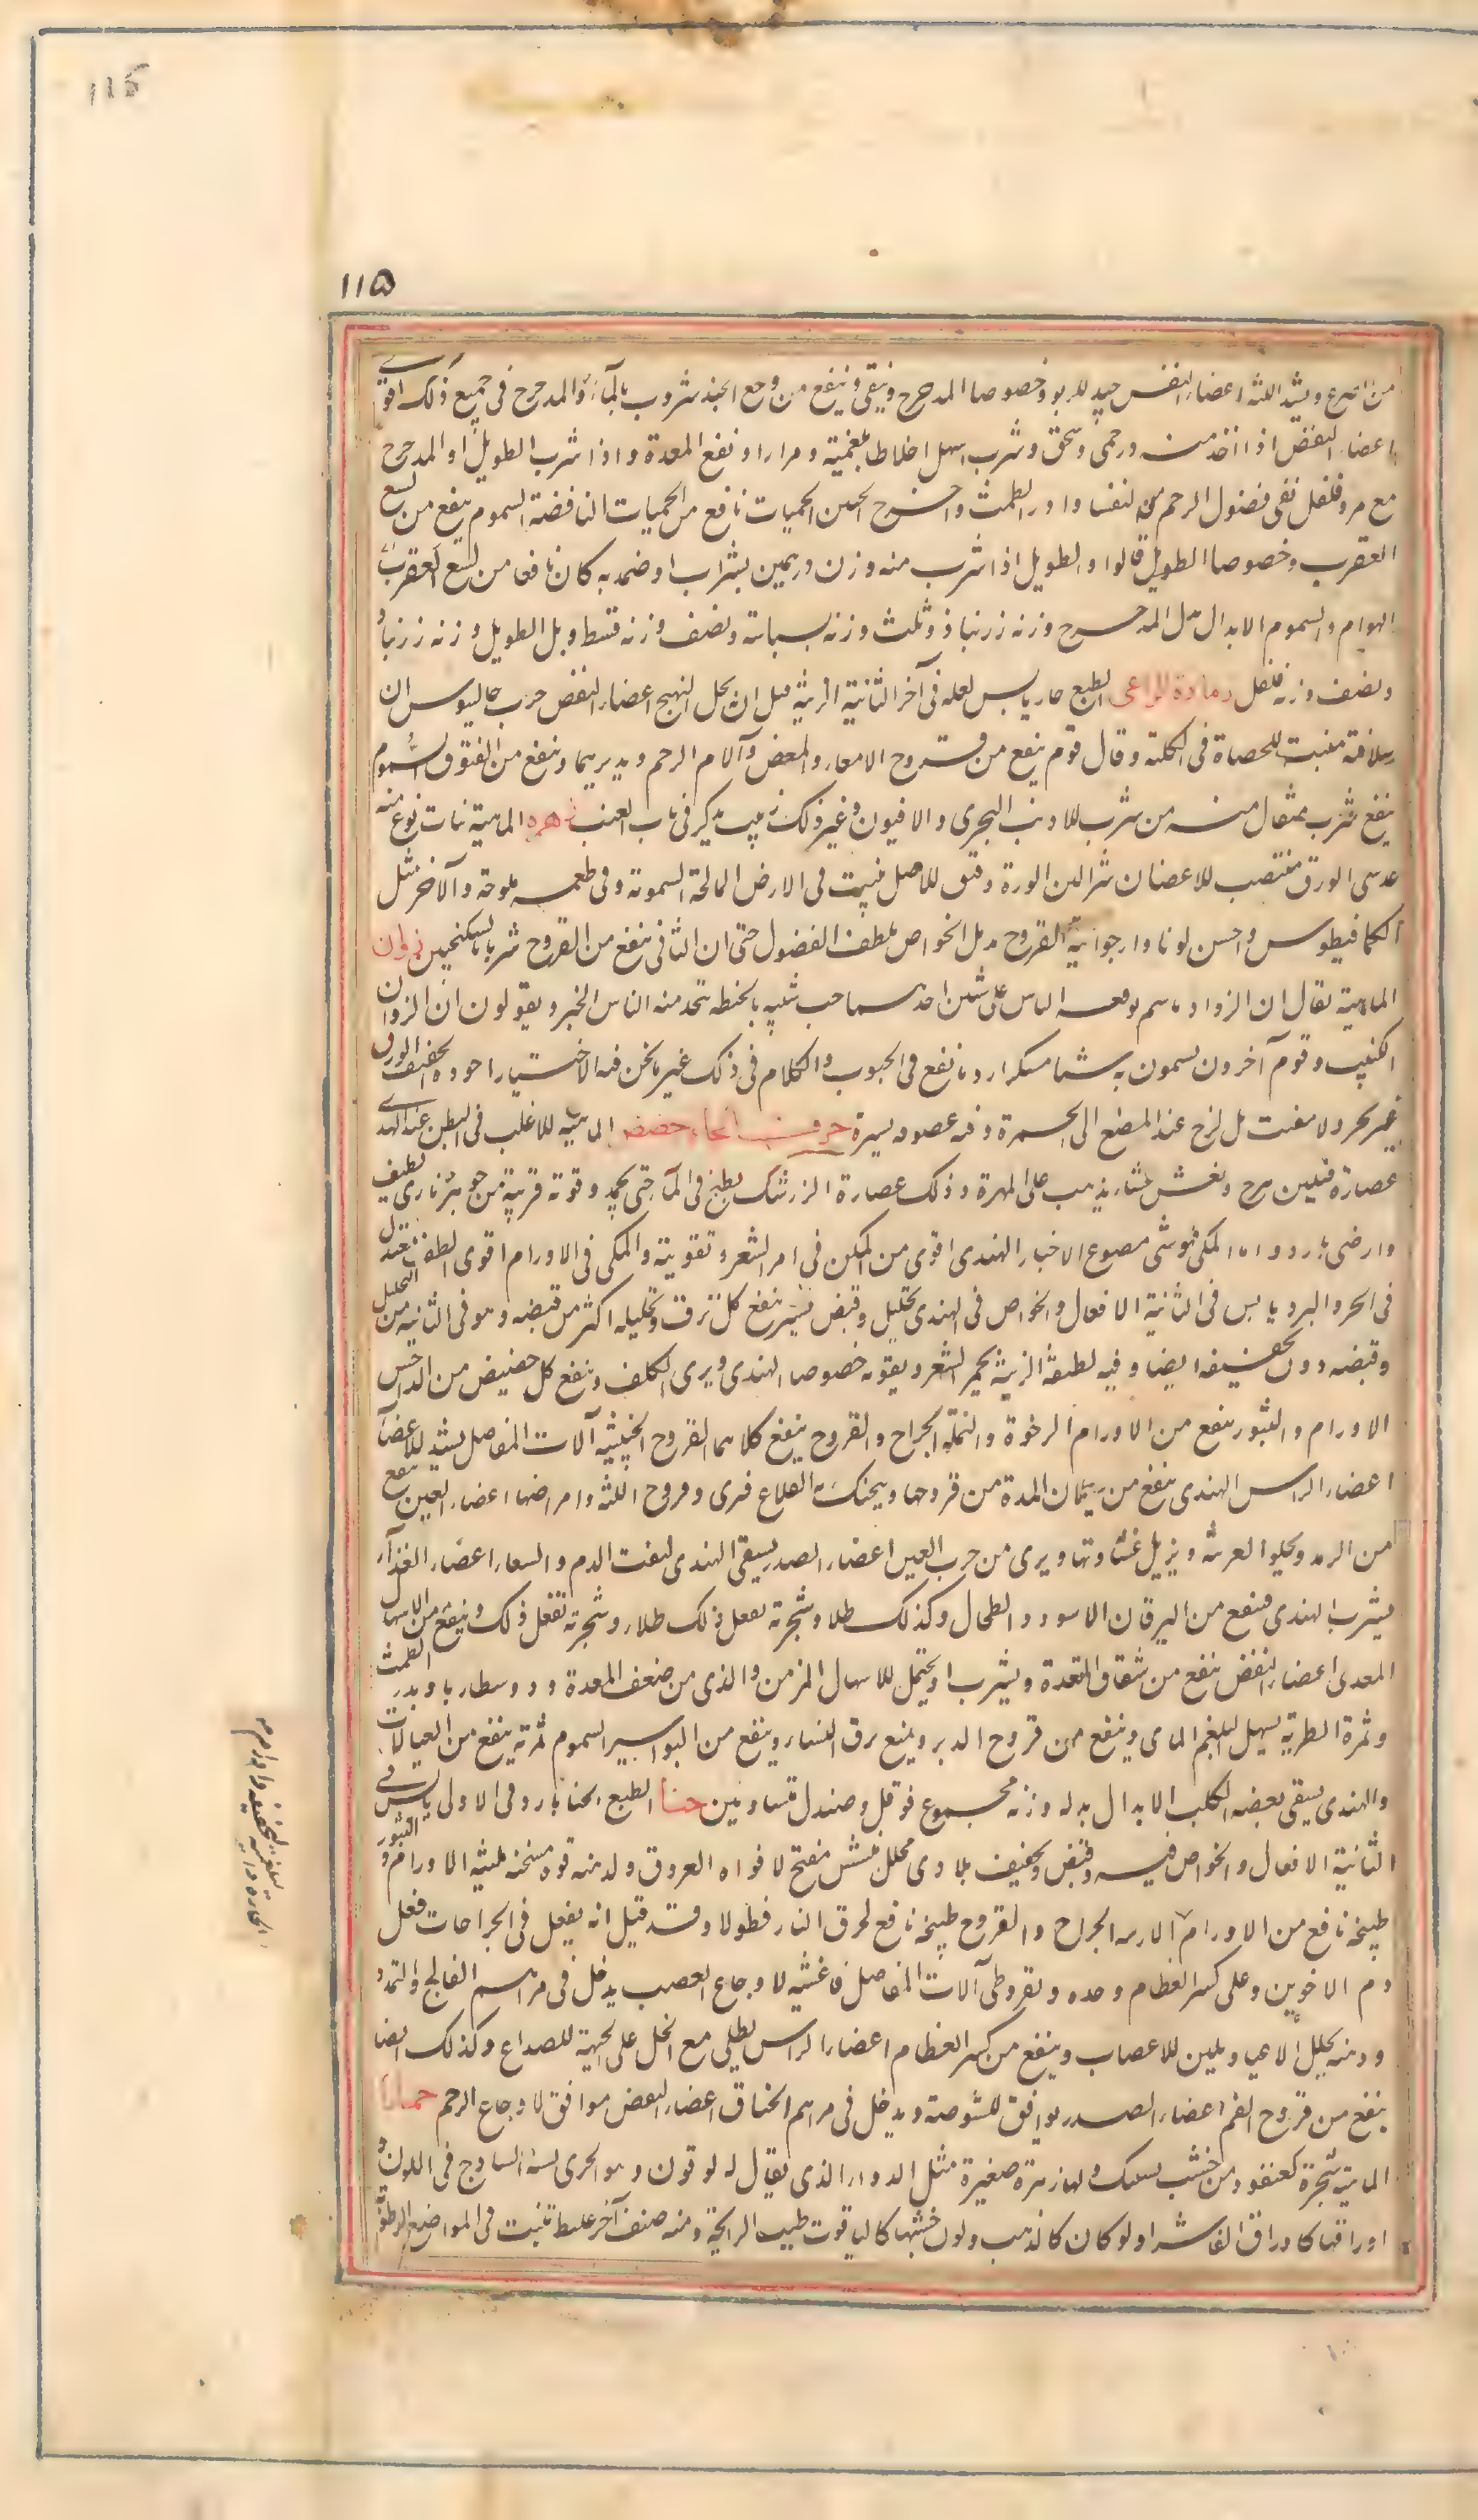 115
115
من الصرع ويشد اللثه اعضاء النفس جيد للربو وخصوصا المدحرج وينقى وينفع من وجع الجنب شروب بالماء والمدحرج فى جميع ذلك اقوى
اعضاء النفض اذا اخذ منه درخمى وسحق وشرب اسهل اخلاطا بلغمية ومرارا ونفع المعدة واذا شرب الطويل او المدحرج
مع مر وفلفل نقى فضول الرحم من النفساء وادر الطمث واخرج الجنين الحميات نافع من الحميات النافضة السموم ينفع من لسع
العقرب وخصوصا الطويل قالوا والطويل اذا شرب منه وزن درهمين بشراب او ضمد به كان نافعا من لسع العقرب
الهوام والسموم الابدال بدل المدحرج وزنه زرنباد وثلث وزنه بسباسة ونصف وزنه قسط وبدل الطويل وزنه زرنباد
ونصف وزنه فلفل زمارة الراعى الطبع حار يابس لعله فى آخر الثانية الزينة قيل ان يحل التهيج اعضاء النفض جرب جالينوس ان
سلاقته مفتت للحصاة فى الكلية وقال قوم ينفع من قروح الامعاء والمغص وآلام الرحم ويدر بهما وينفع من الفتوق السموم
ينفع شرب مثقال منه من شرب الارنب البحرى والافيون وغير ذلك زبيب يذكر فى باب العنب زهره الماهية نبات نوع منه
عدسى الورق منتصب الاغصان شبر لين الورق دقيق الاصل ينبت فى الارض المالحة السموته وفى طعمه ملوحة والآخر مثل
الكمافيطوس واحسن لونا وارجوانية القروح مدمل الخواص يلطف الفضول حتى ان الثانى ينفع من القروح شربا بالسكنجبين زوان
الماهية يقال ان الزوان اسم يوقعه الناس على شيئين احدهما حب شبيه بالحنطه يتخذ منه الناس الخبز ويقولون ان الزوان
وقوم آخرون يسمون به شيئا مسكرا ردئا ينفع فى الحبوب والكلام فى ذلك غير ما نحن فيه الاختيار اجوده الخفيف الوزن
غير نخر ولا مفتت بل لزج عند المضغ الى الحمرة وفيه عفوصه يسيرة حرف الحاء حضض الماهية الاغلب فى الظن عند الهندى
عصارة فيلزهرج ويغش غشا يذهب على المهرة وذلك عصارة الزرشك يطبخ فى الماء حتى يجمد وقوته قريبة من جوهر نارى لطيف
وارضى بارد واما المكى فهو شى مصنوع الاختيار الهندى اقوى من المكى فى امر الشعر وتقويته والمكى فى الاورام اقوى الطبع معتدل
فى الحر والبرد يابس فى الثانية الافعال والخواص فى الهندى تحليل وقبض يسير ينفع كل نزف وتحليله اكثر من قبضه وهو فى الثانية من التحليل
وقبضه دون تجفيفه ايضا وفيه لطيفة الزينة يحمر الشعر ويقويه خصوصا الهندى ويبرى الكلف وينفع كل حضيض من الداحس
الاورام والبثور ينفع من الاورام الرخوة والنملة الجراح والقروح ينفع كلاهما القروح الخبيثه آلات المفاصل يشد الاعضاء
اعضاء الراس الهندى ينفع من سيلان المدة من قروحها ويحنك به القلاع فيبرى وقروح اللثه وامراضها اعضاء العين ينفع
من الرمد ويجلو القرنية ويزيل غشاوتها ويبرى من جرب العين اعضاء الصدر يسقى الهندى لنفث الدم والسعال اعضاء الغذاء
يشرب الهندى فينفع من اليرقان الاسود والطحال وكذلك طلاء وشجرته يفعل ذلك طلاء وشجرته تفعل ذلك وينفع من الاسهال
المعدى اعضاء النفض ينفع من شقاق المقعدة ويشرب او يحتمل للاسهال المزمن والذى من ضعف المعدة ودوسنطاريا ويدر الطمث
وثمرة الطرية يسهل البلغم المائى وينفع من قروح الدبر ويمنع نزف النساء وينفع من البواسير السموم ثمرته ينفع من القتالات
والهندى يسقى بعضه الكلب الابدال بدله وزنه مجموع فوفل وصندل متساويين حنا الطبع الحنا بارد فى الاولى يابس فى
الثانية الافعال والخواص فيه وقبض وتجفيف بلا اذى محلل منشش مفتح لافواه العروق ولدهنه قوة مسخنه ملينة الاورام والبثور
طبيخه نافع من الاورام الحارة الجراح والقروح طبيخه نافع لحرق النار نطولا وقد قيل انه يفعل فى الجراحات فعل
دم الاخوين وعلى كسر العظام وحده وبقيروطى آلات المفاصل فاغيته لاوجاع العصب يدخل فى مراهم الفالج والتمدد
ودهنه يحلل الاعيا ويلين الاعصاب وينفع من كسر العظام اعضاء الراس يطلى مع الخل على الجبهة للصداع وكذلك ايضا
ينفع من قروح الفم اعضاء الصدر يوافق للشوصة ويدخل فى مراهم الخناق اعضاء النفض موافق لاوجاع الرحم حماما
الماهية شجرة كعنقود من خشب مشبك ولها زهرة صغيرة مثل الدواء الذى يقال له لوقون وهو الخيرى الساذج فى اللون و
اوراقها كاوراق الفاشرا ولو كان كالذهب ولون خشبها كالياقوت طيب الرائحة ومنه صنف آخر غليظ تنبت فى المواضع الرطبة